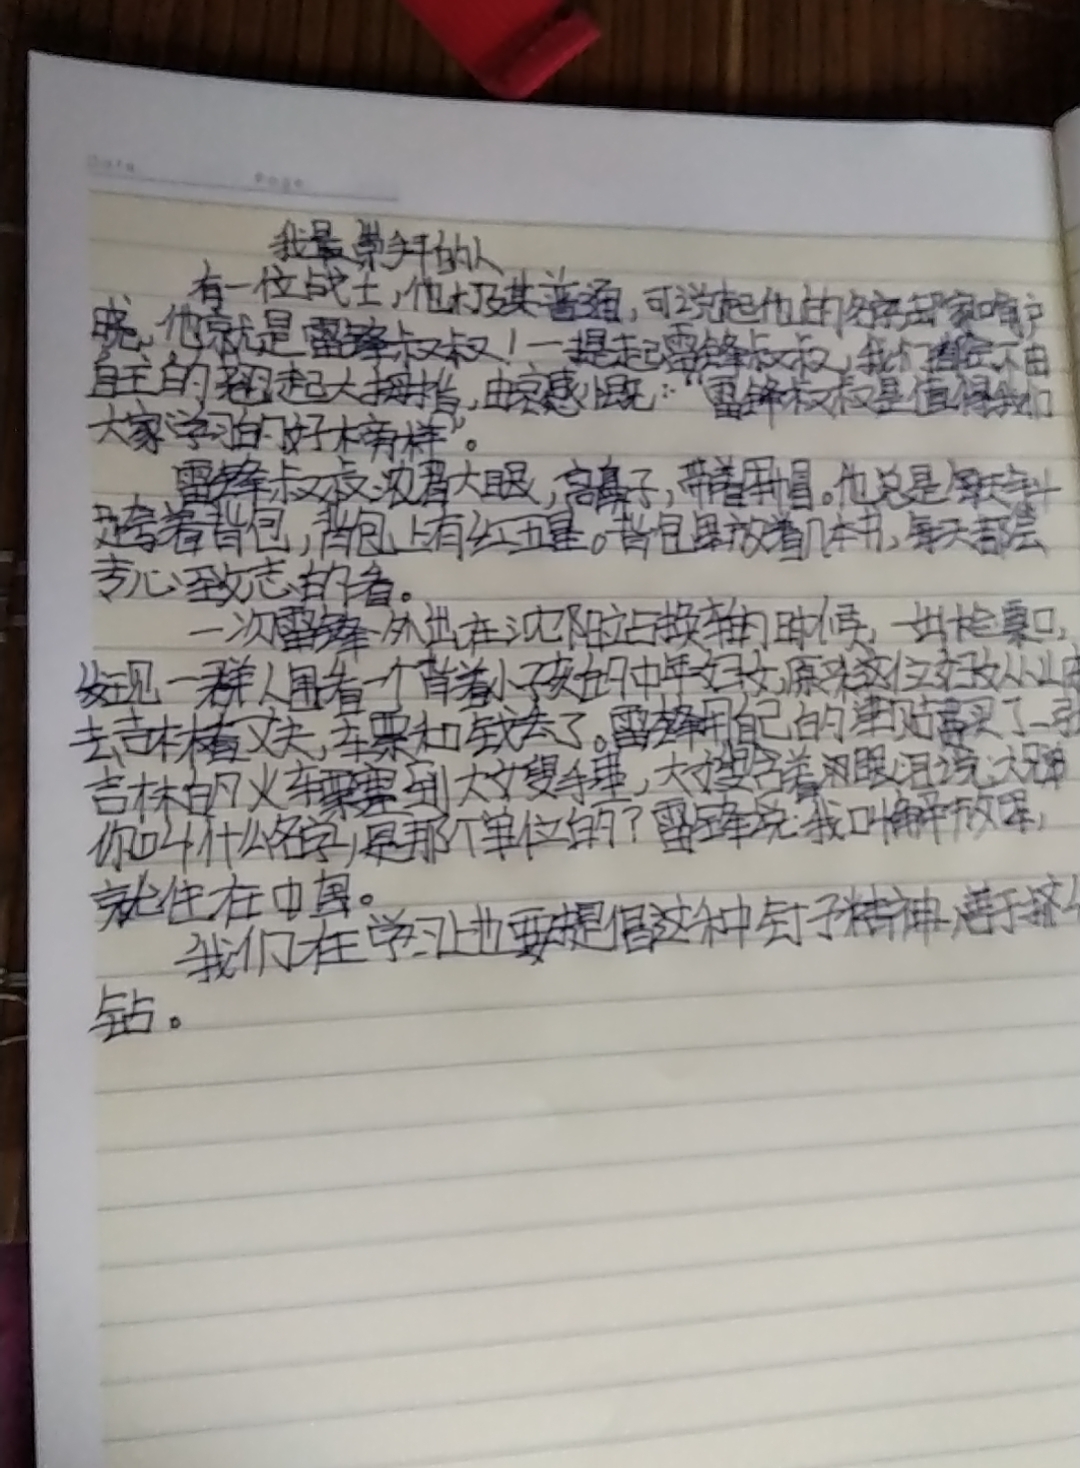 Date
Page
我最崇拜的人
有一位战士,他极其普通,可说起他的名字却家喻户
晓,他就是雷锋叔叔!一提起雷锋叔叔,我们都会不由
自主的翘起大拇指,由衷感慨:“雷锋叔叔是值得我们
大家学习的好榜样”。
雷锋叔叔浓眉大眼,高鼻子,带着军帽。他总是每天
挎着背包,背包上有红五星。背包里放着几本书,每天都会
专心致志的看。
一次雷锋外出在沈阳站换车的时候,一出检票口,
发现一群人围着一个背着小孩的中年妇女,原来这位妇女从山东
去吉林看丈夫,车票和钱丢了。雷锋用自己的津贴费买了一张
吉林的火车票塞到大嫂手里,大嫂含着眼泪说:大兄弟
你叫什么名字,是那个单位的?雷锋说:我叫解放军,
就住在中国。
我们在学习上也要提倡这种钉子精神,善于挤
钻。